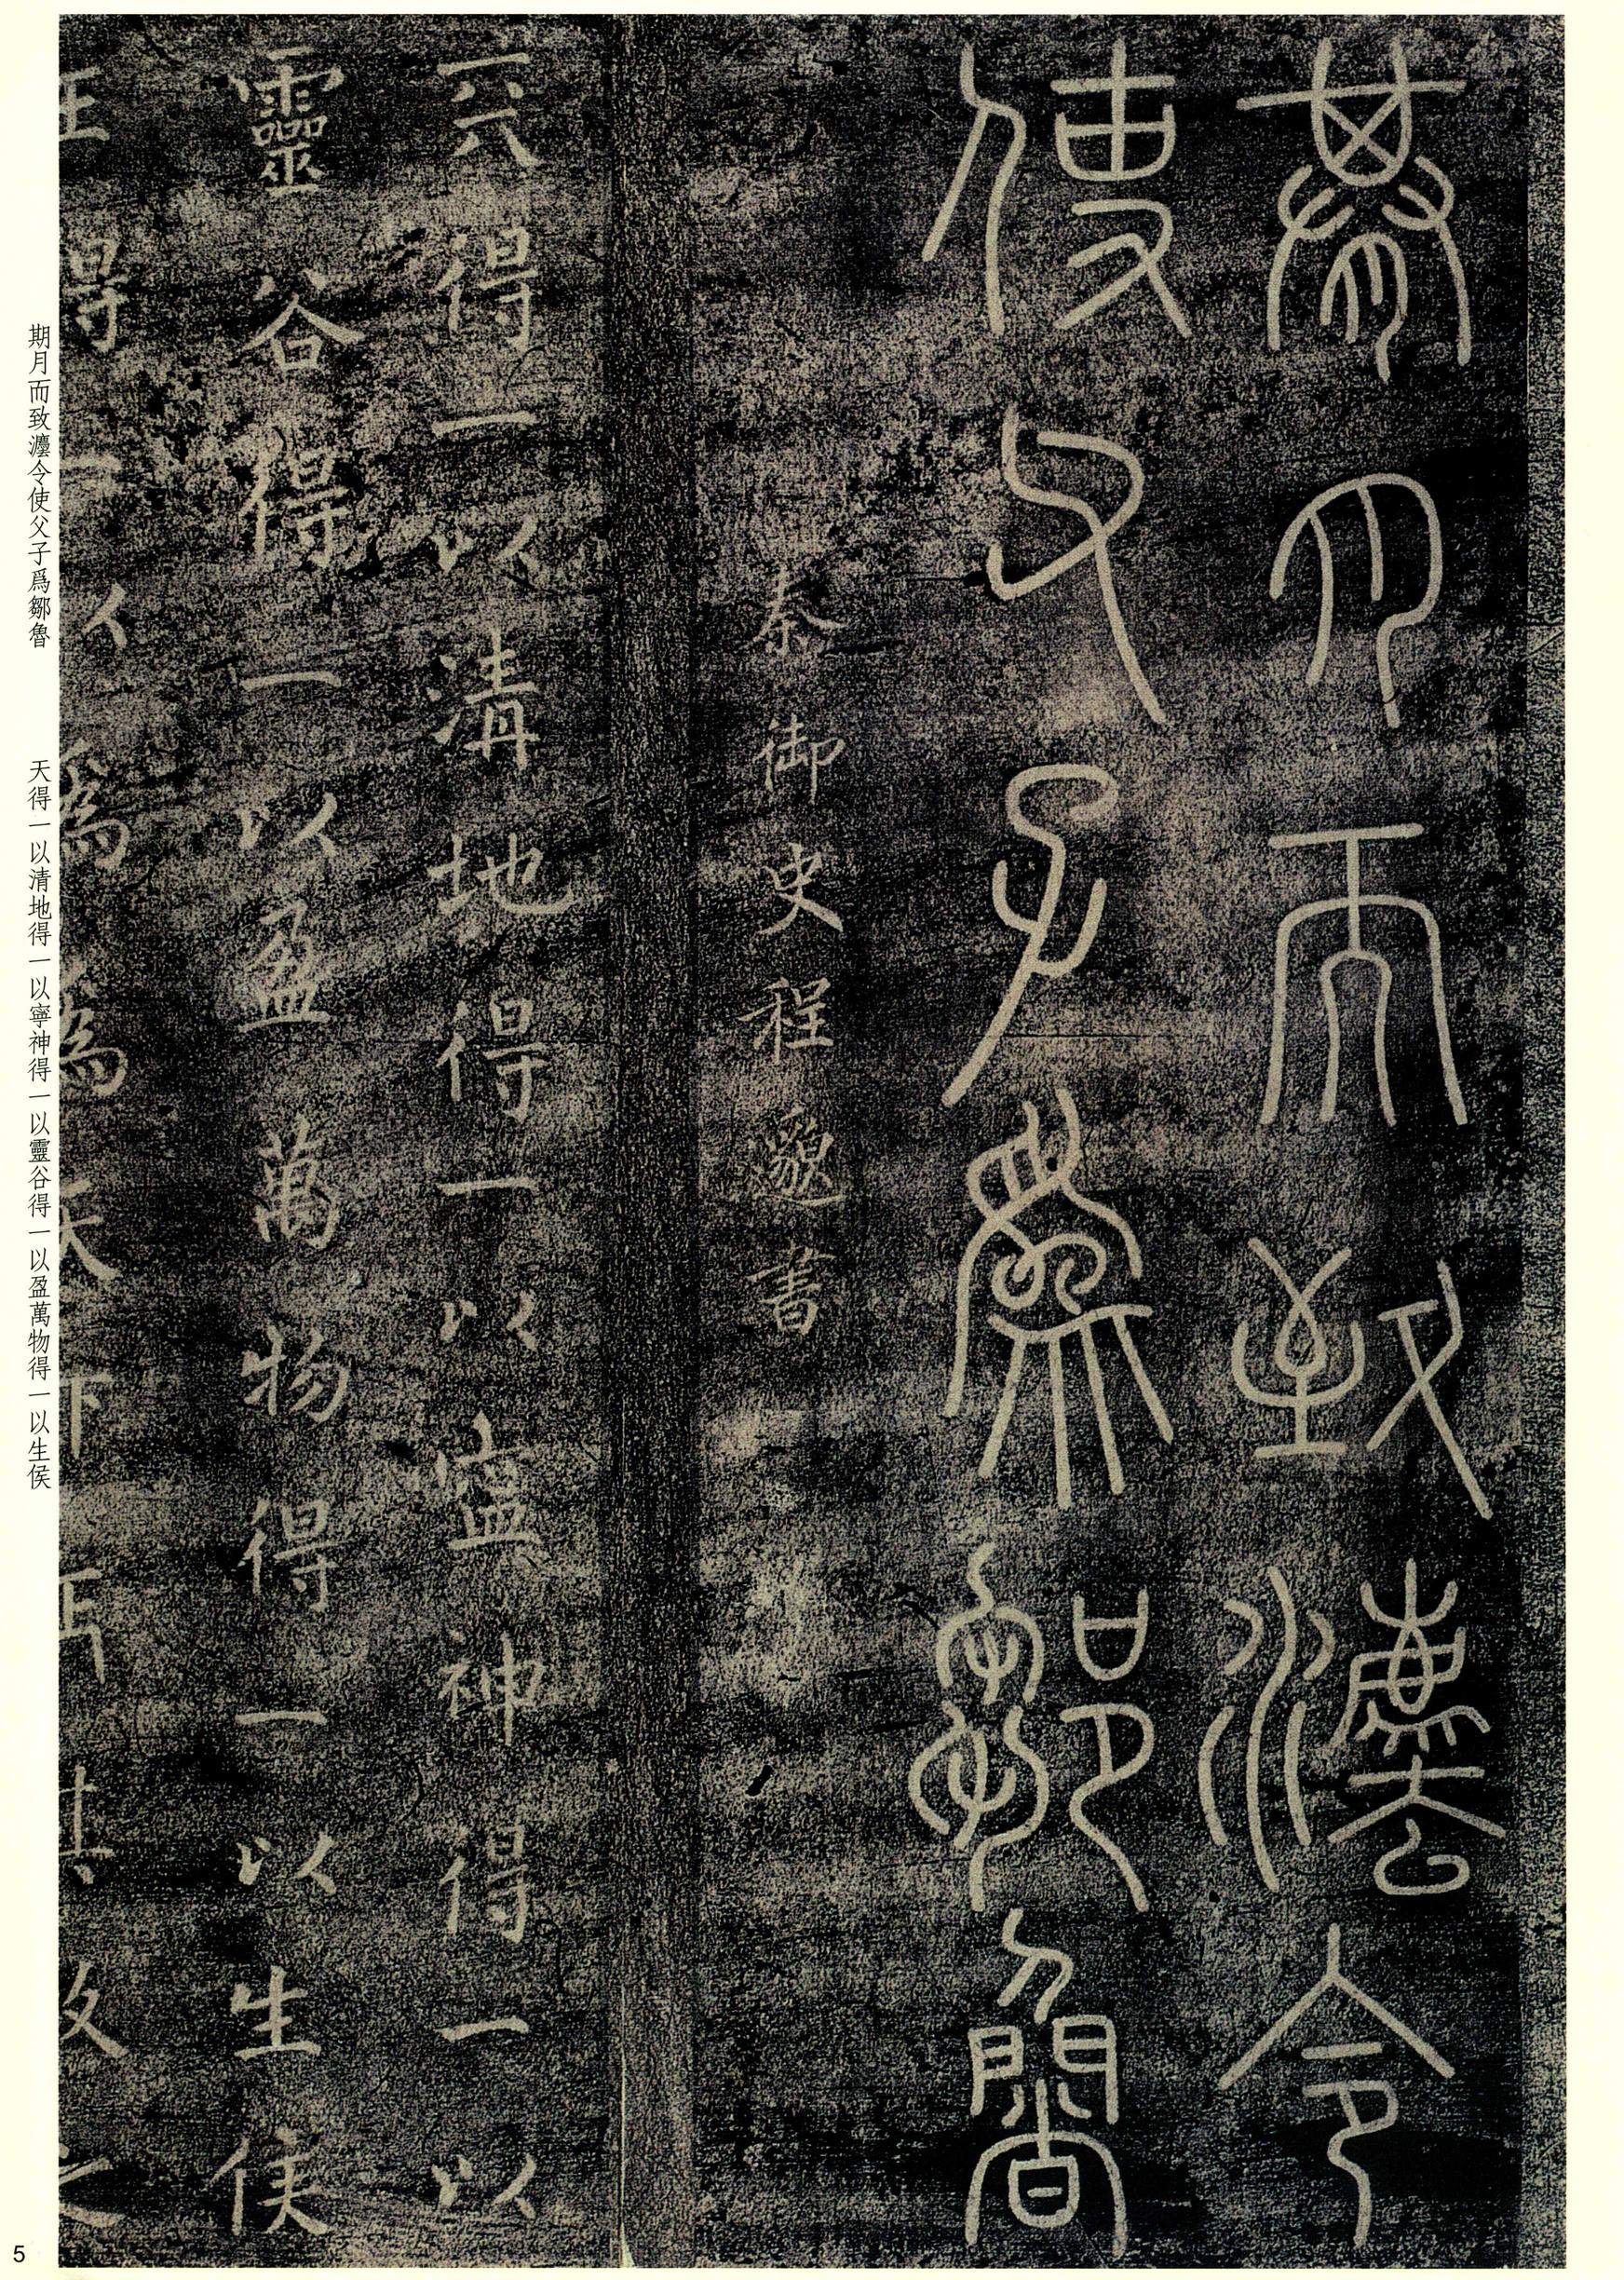 期月而致灋令
使父子爲鄒魯
秦御史程邈書
天得一以清地得一以寧神得一以
靈谷得一以盈萬物得一以生侯
王得一以為為天下正其致之
期月而致灋令使父子爲鄒魯
天得一以清地得一以寧神得一以靈谷得一以盈萬物得一以生侯
5